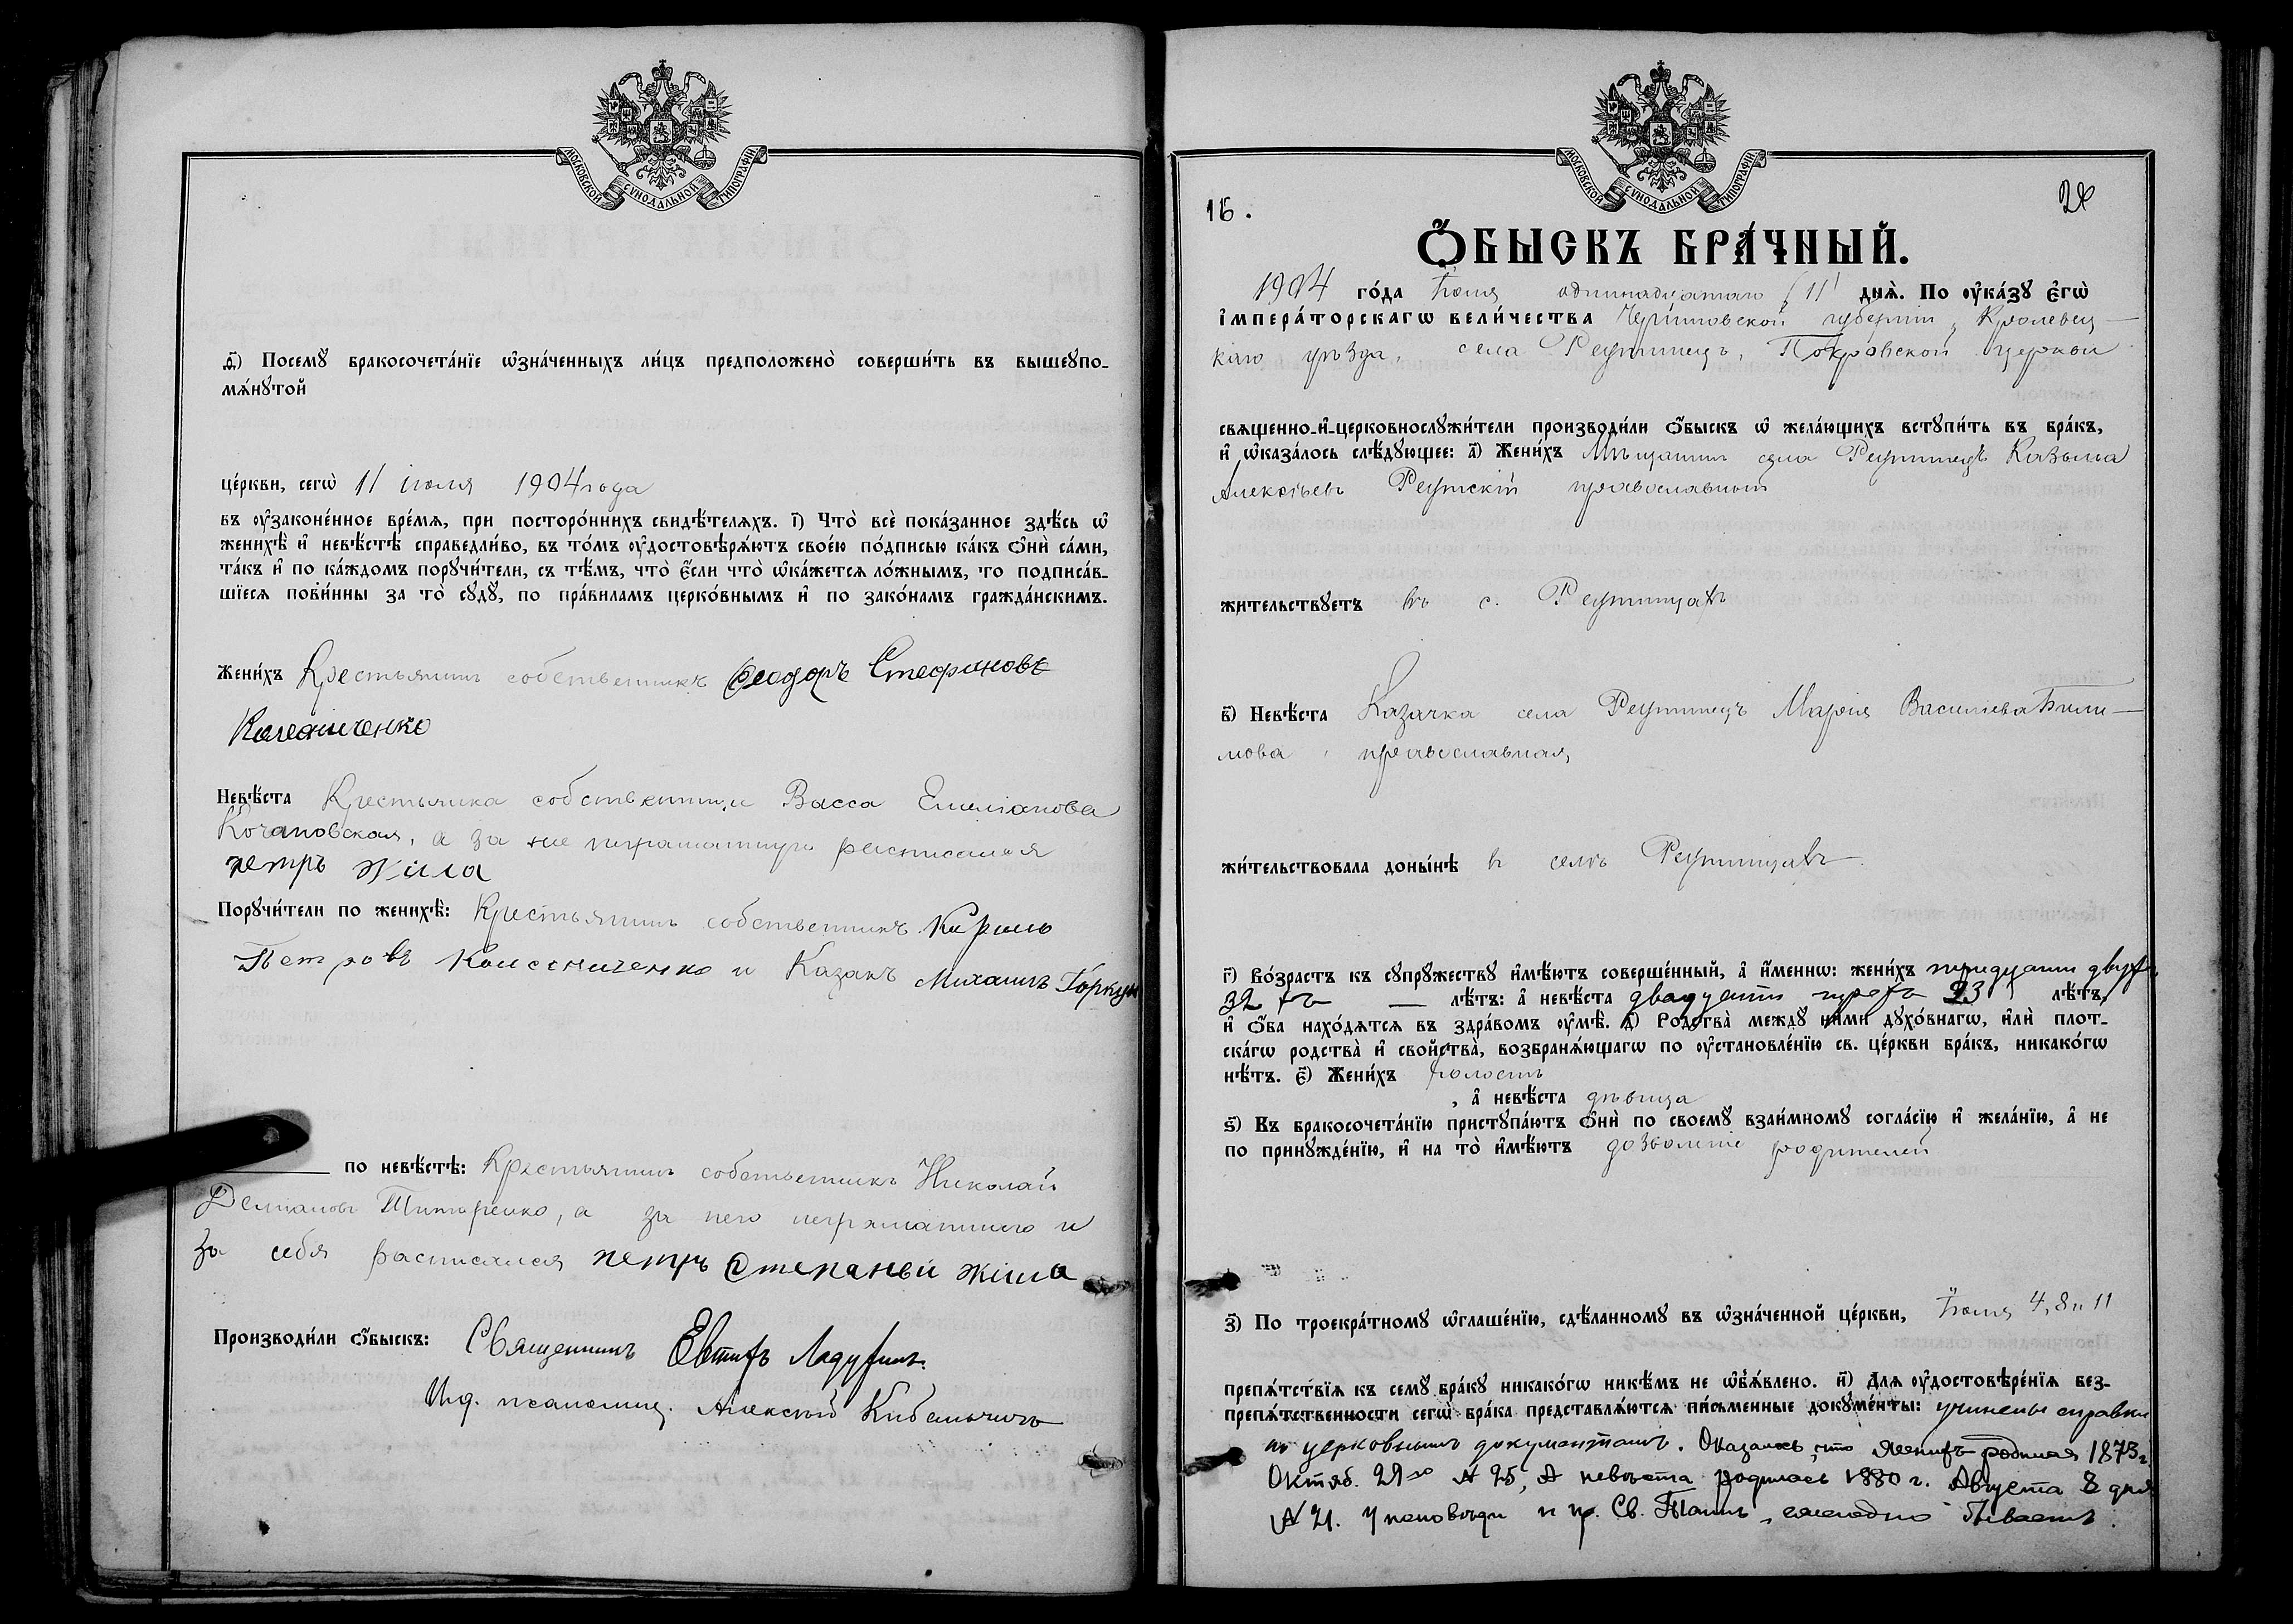 МОСКОВСКОЙ СѴНОДАЛЬНОЙ ТИПОГРАФІИ
д҃) Посемꙋ̀ бракосочета́нїе ѡ҆зна́ченныхъ ли́цъ предположено̀ соверши́ть въ вышеꙋпо-
мѧ́нꙋтой
це́ркви, сегѡ̀ 11 іюля 1904 года
въ ᲂу҆законе́нное вре́мѧ, при посторо́ннихъ свидѣ́телѧхъ. і҃) Что̀ всѐ пока́занное здѣ́сь ѡ҆
женихѣ̀ и҆ невѣ́стѣ справедли́во, въ то́мъ ᲂу҆достовѣрѧ́ютъ свое́ю по́дписью ка́къ ѻ҆нѝ са́ми,
та́къ и҆ по ка́ждомъ порꙋчи́тели, съ тѣ́мъ, что̀ є҆́сли что̀ ѡ҆ка́жетсѧ ло́жнымъ, то подписа́в-
шїесѧ пови́нны за то̀ сꙋдꙋ̀, по пра́виламъ церко́внымъ и҆ по зако́намъ гражда́нскимъ.
Жени́хъ Крестьянинъ собственникъ Ѳеодоръ Стефановъ
Невѣ́ста Крестьянка собственница Васса Емиліанова
Кочановская, а за нее неграматную расписался
петръ жила
Порꙋчи́тели по женихѣ̀: Крестьянинъ собственникъ Кирилъ
Петровъ и Казакъ Михаилъ
по невѣ́стѣ: Крестьянинъ собственникъ Николай
Титаренко, а за него неграматного и
за себя расписался петръ Степаневи жила
Производи́ли ѻ҆́быскъ: Священникъ
Ид. псаломщ. Алексѣй
МОСКОВСКОЙ СѴНОДАЛЬНОЙ ТИПОГРАФІИ
16. 26
Ѻ҆́БЫСКЪ БРА́ЧНЫЙ.
1904 го́да Іюля одиннадцатаго (11) днѧ̀. По ᲂу҆ка́зꙋ є҆гѡ̀
і҆мпера́торскагѡ вели́чества Черниговской губерніи, Кролевец-
каго уѣзда, села Реутинецъ, Покровской церкви
свѧщенно-и҆-церковнослꙋжи́тели производи́ли ѻ҆́быскъ ѡ҆ жела́ющихъ встꙋпи́ть въ бра́къ,
и҆ ѡ҆каза́лось слѣ́дꙋющее: а҃) Жени́хъ Мѣщанинъ села Реутинецъ Казьма
Алексѣевъ Реутскій православный
жи́тельствꙋетъ въ с. Реутинцахъ
в҃) Невѣ́ста Казачка села Реутинецъ Марія Василіева
православная,
жи́тельствовала доны́нѣ въ селѣ Реутинцахъ.
г҃) Во́зрастъ къ сꙋпрꙋ́жествꙋ и҆мѣ́ютъ соверше́нный, а҆ и҆́меннѡ: жени́хъ тридцати двухъ
32 хъ — лѣ́тъ: а҆ невѣ́ста двадцати трехъ 23 лѣ́тъ,
и҆ ѻ҆́ба нахо́дѧтсѧ въ здра́вомъ ᲂу҆мѣ̀. д҃) Родства̀ междꙋ̀ ни́ми дꙋхо́внагѡ, и҆лѝ плот-
ска́гѡ родства̀ и҆ свойства̀, возбранѧ́ющагѡ по ᲂу҆становле́нїю св. це́ркви бра́къ, никако́гѡ
нѣ́тъ. є҃) Жени́хъ холостъ
, а҆ невѣ́ста дѣвица
ѕ҃) Въ бракосочета́нїю пристꙋпа́ютъ ѻ҆нѝ по своемꙋ̀ взаи́мномꙋ согла́сїю и҆ жела́нїю, а҆ не
по принꙋжде́нїю, и҆ на то̀ и҆мѣ́ютъ дозволеніе родителей
з҃) По троекра́тномꙋ ѡ҆глаше́нїю, сдѣ́ланномꙋ въ ѡ҆зна́ченной це́ркви, Іюля 4, 8 и 11
препѧ́тствїѧ къ семꙋ̀ бра́кꙋ никако́гѡ никѣ́мъ не ѡ҆б̾ѧ́влено. и҃) Длѧ ᲂу҆достовѣре́нїѧ без-
препѧ́тственности сегѡ̀ бра́ка представлѧ́ютсѧ пи́сьменные докꙋме́нты: учинены справки
по церковнымъ документамъ. Оказалось, что женихъ родился 1873 г.
Октяб. 29го № 25, А невѣста родилась 1880 г. Августа 8 дня
№ 21. У исповѣди и пр. Св. Таинъ ежегодно бываетъ.